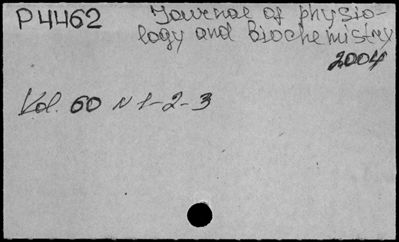 P4462 Journal of physio-
logy and biochemistry
2004
Vol. 60 N 1-2-3